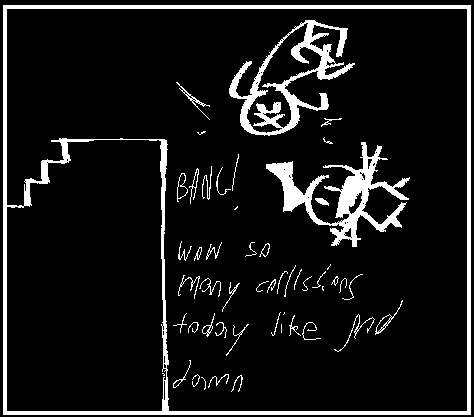 BANG!
wow so
many collissions
today like god
damn